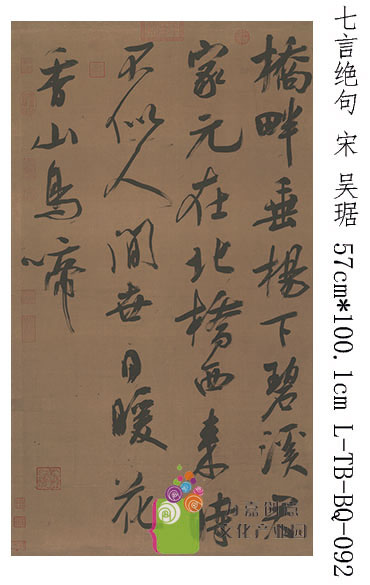 橋畔垂楊下碧溪君
家元在北橋西來時
不似人間世日暖花
香山鳥啼
七言绝句 宋 吴琚 57cm*100.1cm L-TB-BQ-092
创意
文化产业园